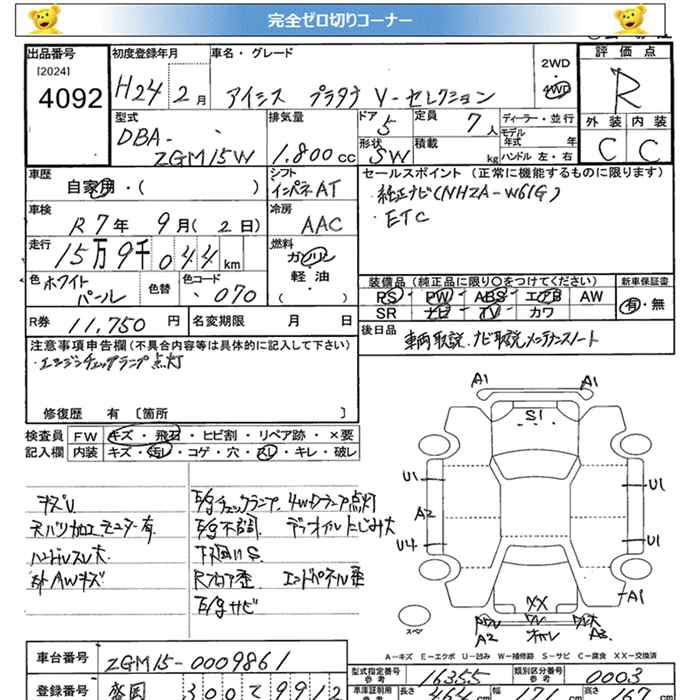 完全ゼロ切りコーナー
出品番号
[2024]
4092
初度登録年月
H24 2月
車名・グレード
アイシス プラタナ V-セレクション
2WD
4WD
評価点
R
外装 内装
C C
型式
DBA-
ZGM15W
排気量
1.800cc
ドア 5
形状 SW
定員 7人
積載 kg
ディーラー・並行
モデル年式 年
ハンドル 左・右
車歴
自家用・( )
シフト
インパネAT
車検
R7年 9月(2日)
冷房
AAC
走行
15万9千044km
燃料
ガソリン
軽・油
( )
色 ホワイトパール
色替
色コード
070
R券 11,750円
名変期限 月 日
セールスポイント (正常に機能するものに限ります)
・純正ナビ(NHZA-W61G)
・ETC
装備品 (純正品に限り○をつけてください)
PS・PW・ABS・エアB AW
SR ナビ TV カワ
新車保証書
有・無
後日品 車両取説.ナビ取説.メンテナンスノート
注意事項申告欄(不具合内容等は具体的に記入して下さい)
・エンジンチェックランプ点灯
修復歴 有 〔箇所 〕
検査員記入欄
FW キズ・飛石・ヒビ割・リペア跡・×要
内装 キズ・汚レ・コゲ・穴・スレ・キレ・破レ
天バリ加工モニター有
ハンドルスレ大
外AWキズ
E/gチェックランプ.4WDランプ点灯
E/g不調 デフオイルにじみ大
下廻りS
Rフロア歪 エンドパネル歪
E/gサビ
A1 A1
S1
U1 U1
A2
U4 U1
A1
XX
スペ
A2 A3
A-キズ E-エクボ U-凹み W-補修跡 S-サビ C-腐食 XX-交換済
車台番号
ZGM15-0009861
登録番号
盛岡 300 て 9912
型式指定番号 参考
16355
類別区分番号 参考
0003
車庫証明用 参考
長さ 464cm 幅 171cm 高さ 167cm